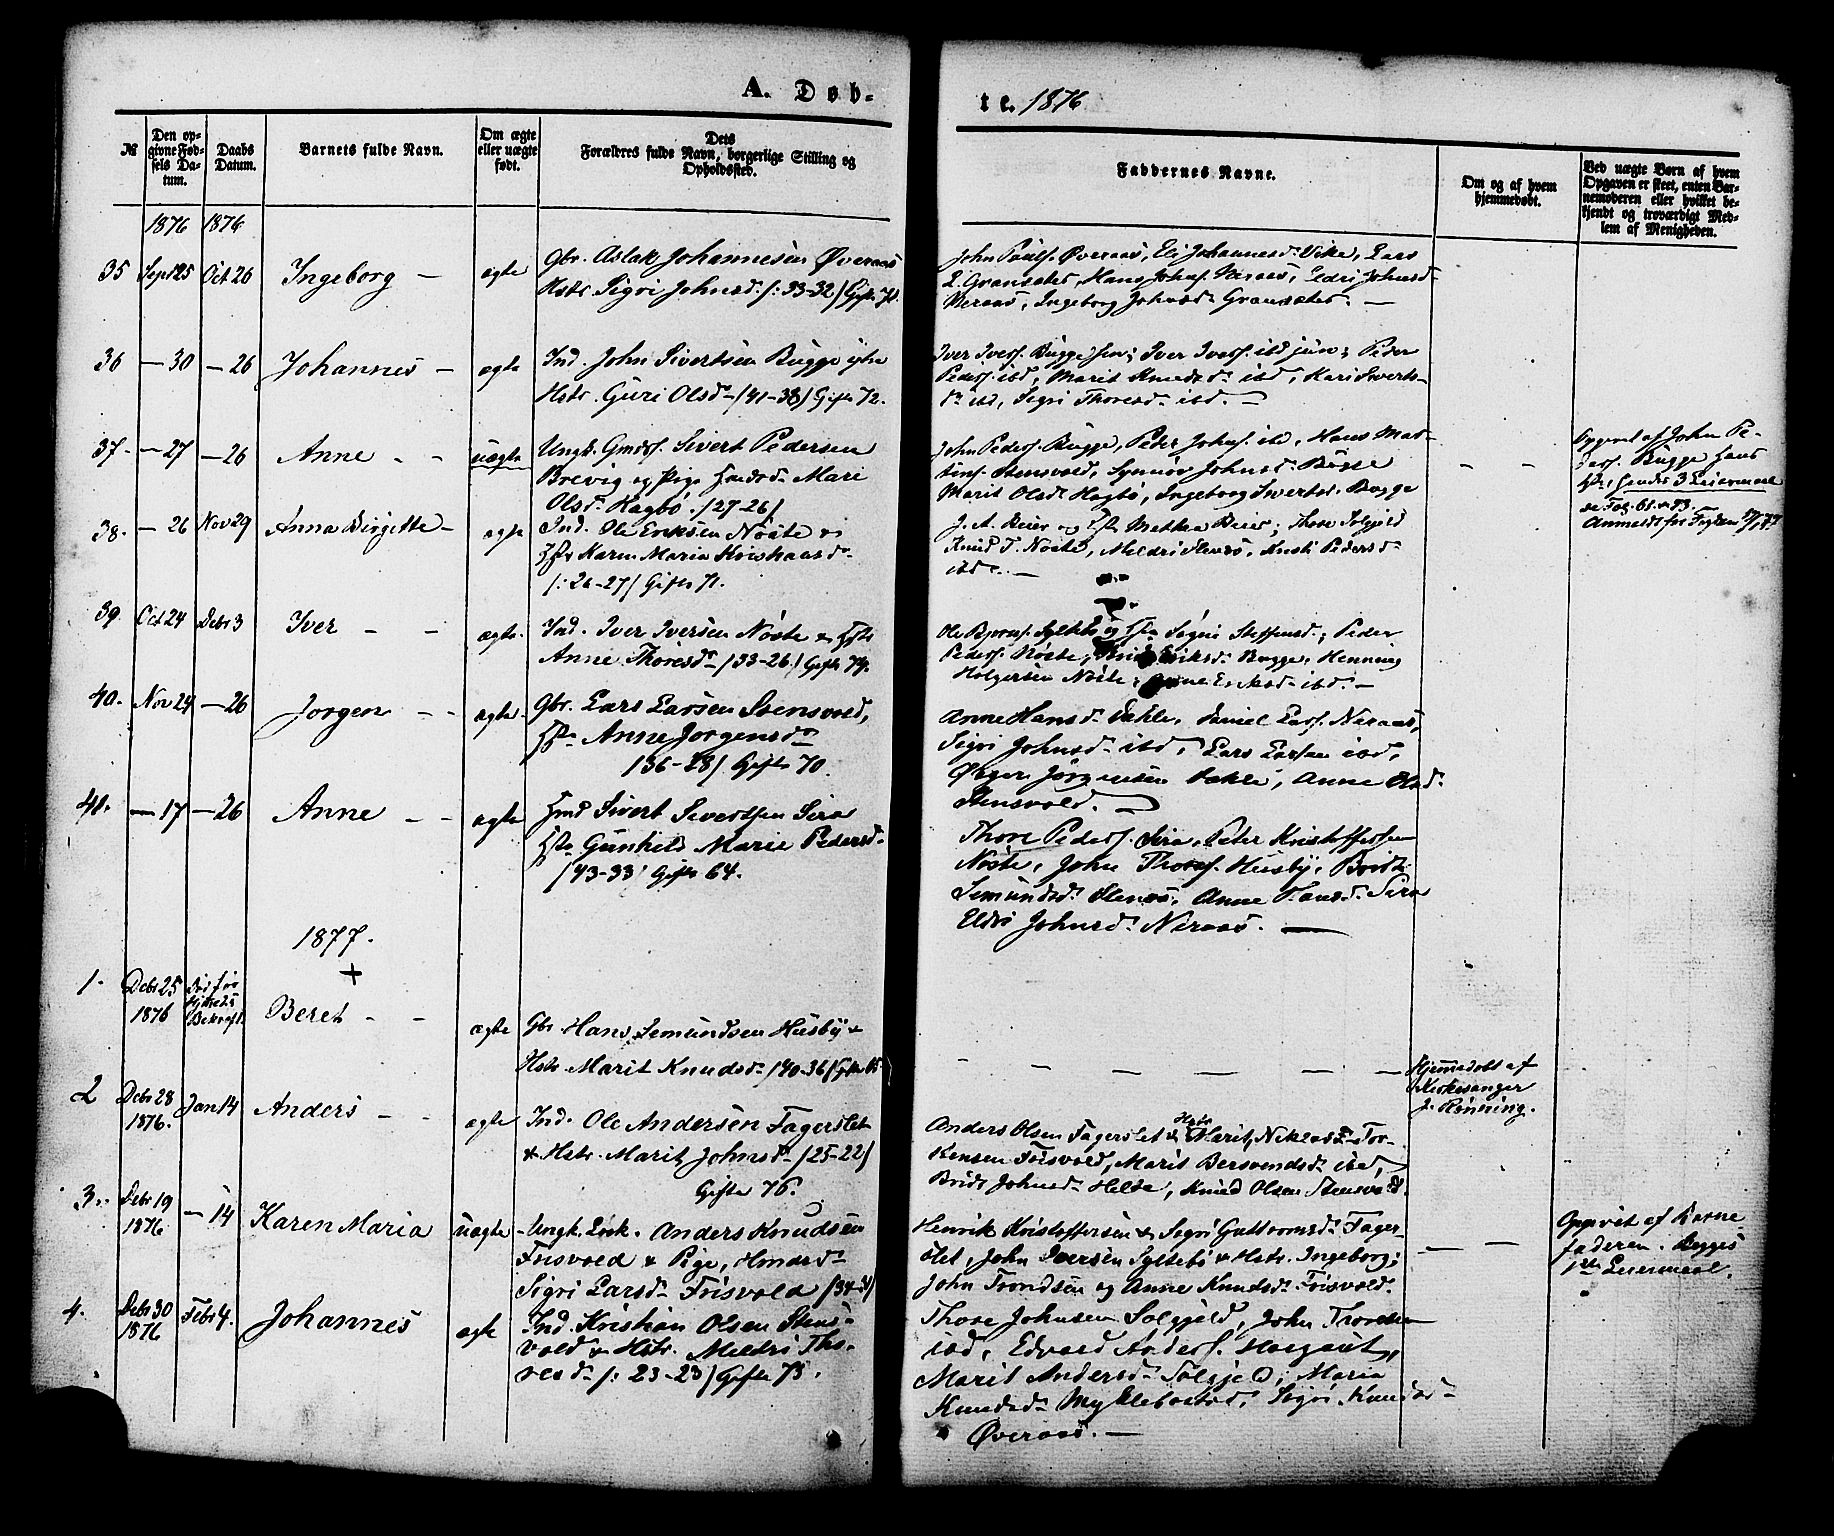 A. Døb-
te. 1876
№
Den op-
givne Fød-
sels Da-
tum.
Daabs
Datum.
Barnets fulde Navn.
Om ægte
eller uægte
født.
Dets
Forældres fulde Navn, borgerlige Stilling og
Opholdssted.
Faddernes Navne.
Om og af hvem
hjemmedøbt.
Ved uægte Børn af hvem
Opgaven er skeet, enten Bar-
nemoderen eller hvilket be-
kjendt og troværdigt Med-
lem af Menigheden.
1876 1876
35 Sept 25 Oct 26 Ingeborg — ægte
Gbr. Aslak Johannesen Øveraas
Hstr. Sigri Johnsd. /: 33-32/ Gift
John Pauls. Øveraas, Eli Johannesd. Vike, Lars
L. Gransæter, Hans Johns. Neraas,
Neraas, Ingeborg Johnsd. Gransæter. —
36 — 30 — 26 Johannes — ægte
Ind. John Sivertsen Bugge
Hstr. Guri Olsd. /41-38/ Gifte 72.
Iver Ivers. Bugge sen; Iver Ivers. ibd jun; Peder
Peders. ibd, Marit Knudsd. ibd, Kari Siverts-
dr ibd, Sigri Thoresd. ibd. —
37. — 27 — 26 Anne — — uægte
Ungk. Gmds. Sivert Pedersen
Brevig og Pige Mari
Olsd. Hagbø. /27-26/
John Peders. Bugge, Peter Johns. ibd, Hans Mat-
Stensvold, Synnøv Johnsd. Bugge
Marit Olsd. Hagbø, Ingeborg Sivertsd. Bugge
— —
Opgivet af John Pe-
ders. Bugge hans
Leiermaal
Anmeldt for Fogden
38. — 26 Nov 29 Anna Birgitte — ægte
Ind. Ole Eriksen Nøste &
Hstr Karen Maria
/: 26-27/ Gifte 71.
J. A. Beier og Beier; Thore Solgjeld
Knud T. Nøste, Meldri Stensø, Kristi Pedersd.
ibd. —
39. Oct 24 Debr 3 Iver — — ægte.
Ind. Iver Iversen Nøste &
Anne Thoresd. /33-26/ Gifte 74.
Ole Bjørns. Syltebø og Sigri Steffensd.; Peder
Peders. Nøste; Eriksd. Bugge, Henning
Holgersen Nøste; ibd. —
40. Nov 24 — 26 Jørgen — — ægte.
Gbr. Lars Larsen Stensvold,
Anne Jørgensd.
/36-28/ Gifte 70.
Anne Hansd. Dahle, Daniel Lars. Neraas,
Sigri Johnsd. ibd, Lars Larsen ibd,
Jørgensen Dahle, Anne Olsd.
Stensvold. —
41. — 17 — 26 Anne — — ægte
Hmd Sivert Sivertsen Sira
Gunhild Marie Pedersd.
/43-33/ Gifte 64.
Thore Peders. Sira, Peter Kristoffersen
Nøste, John Thores. Husby,
Semundsd. Stensø, Anne Hansd. Sira
Eldri Johnsd. Neraas. —
1877.
+
1. Debr 25
1876
Bekræft.
Beret — — ægte
Gbr. Hans Semundsen Husby &
Hstr. Marit Knudsd. /40-36/
— — — — — —
Hjemmedøbt af
Kirkesanger
J. Rønning.
2 Debr 28
1876.
Jan 14 Anders — — ægte
Ind. Ole Andersen Fagerslet
& Hstr. Marit Johnsd. /25-22/
Gifte 76.
Anders Olsen Fagerslet & Hstr Marit,
Frisvold, Marit Bersvendsd. ibd,
Johnsd. Helde, Knud Olsen Stensvold.
3. Debr 19
1876
— 14 Karen Maria uægte
Ungk. Anders Knudsen
Frisvold & Pige,
Sigri Larsd. Frisvold
Henrik Kristoffersen & Sigri Guttormsd. Fager-
slet, John Iversen Syltebø & Hstr. Ingeborg;
John Trondsen og Anne Knudsd. Frisvold.
— —
Opgivet af Barne-
faderen. Begges
1ste Leiermaal.
4. Debr 30
1876
Febr 4. Johannes ægte
Ind. Kristian Olsen Stens-
vold & Hstr. Meldri Tho-
resd. /: 23-23/ Gifte 75.
Thore Johnsen Solgjeld, John Thoresen
ibd, Edvard Anders.
Marit Andersd. Solgjeld; Maria
Knudsd. Myklebostad, Sigri Knudsd.
Øveraas. —